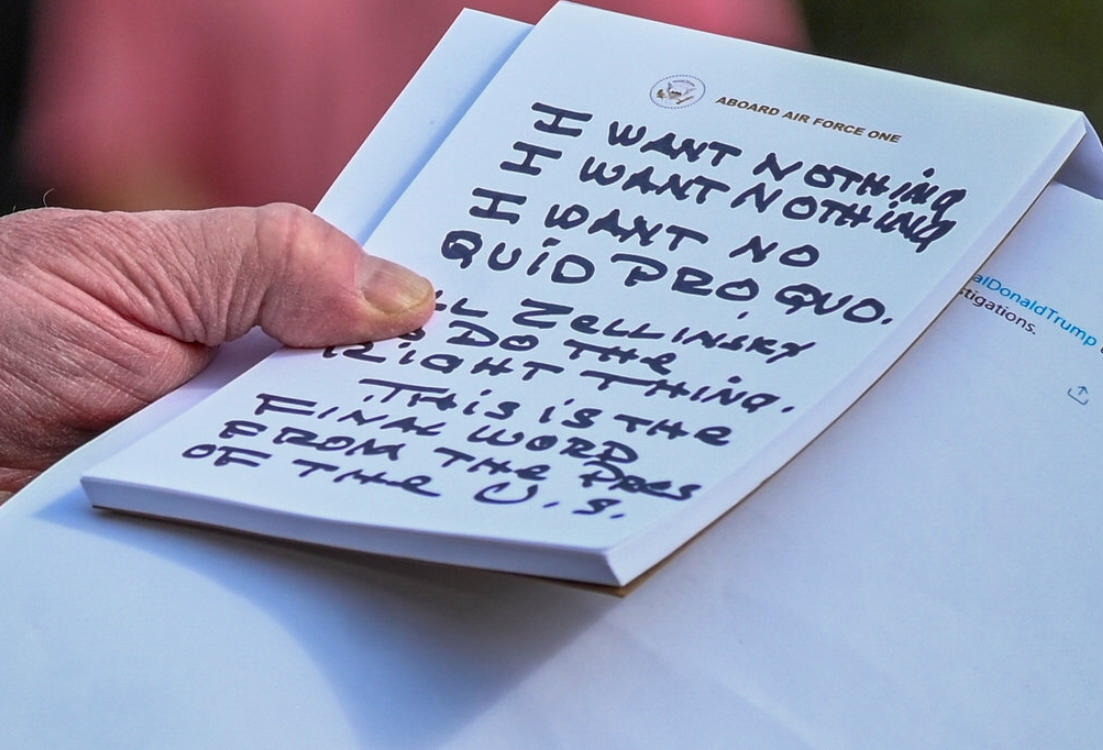 ABOARD AIR FORCE ONE
I WANT NOTHING
I WANT NOTHING
I WANT NO
QUID PRO QUO.
LL ZELLINSKY
DO THE
RIGHT THING.
THIS IS THE
FINAL WORD
FROM THE PRES
OF THE U.S.
alDonaldTrump
tigations.